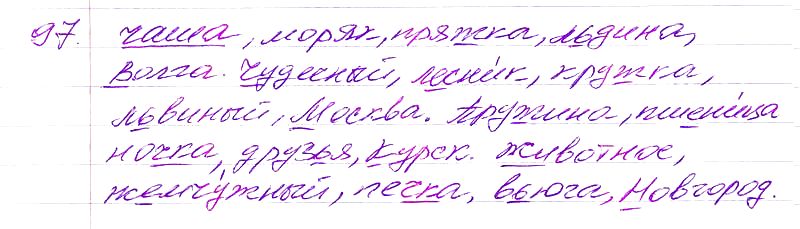 97. чаша, моряк, пряжка, льдина,
Волга. Чудесный, лесник, кружка,
львиный, Москва. Пружина, пшеница
ночка, друзья, Курск. Животное,
жемчужный, печка, вьюга, Новгород.